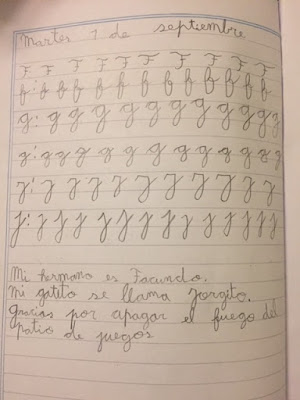 Martes 1 de septiembre
F F F F F F F F F F
f: f f f f f f f f f f f f
G: G G G G G G G G G G G
g: g g g g g g g g g g g g
J: J J J J J J J J J J
j: j j j j j j j j j j j j j
Mi hermano es Facundo.
Mi gatito se llama Jorgito.
Gracias por apagar el fuego del
patio de juegos